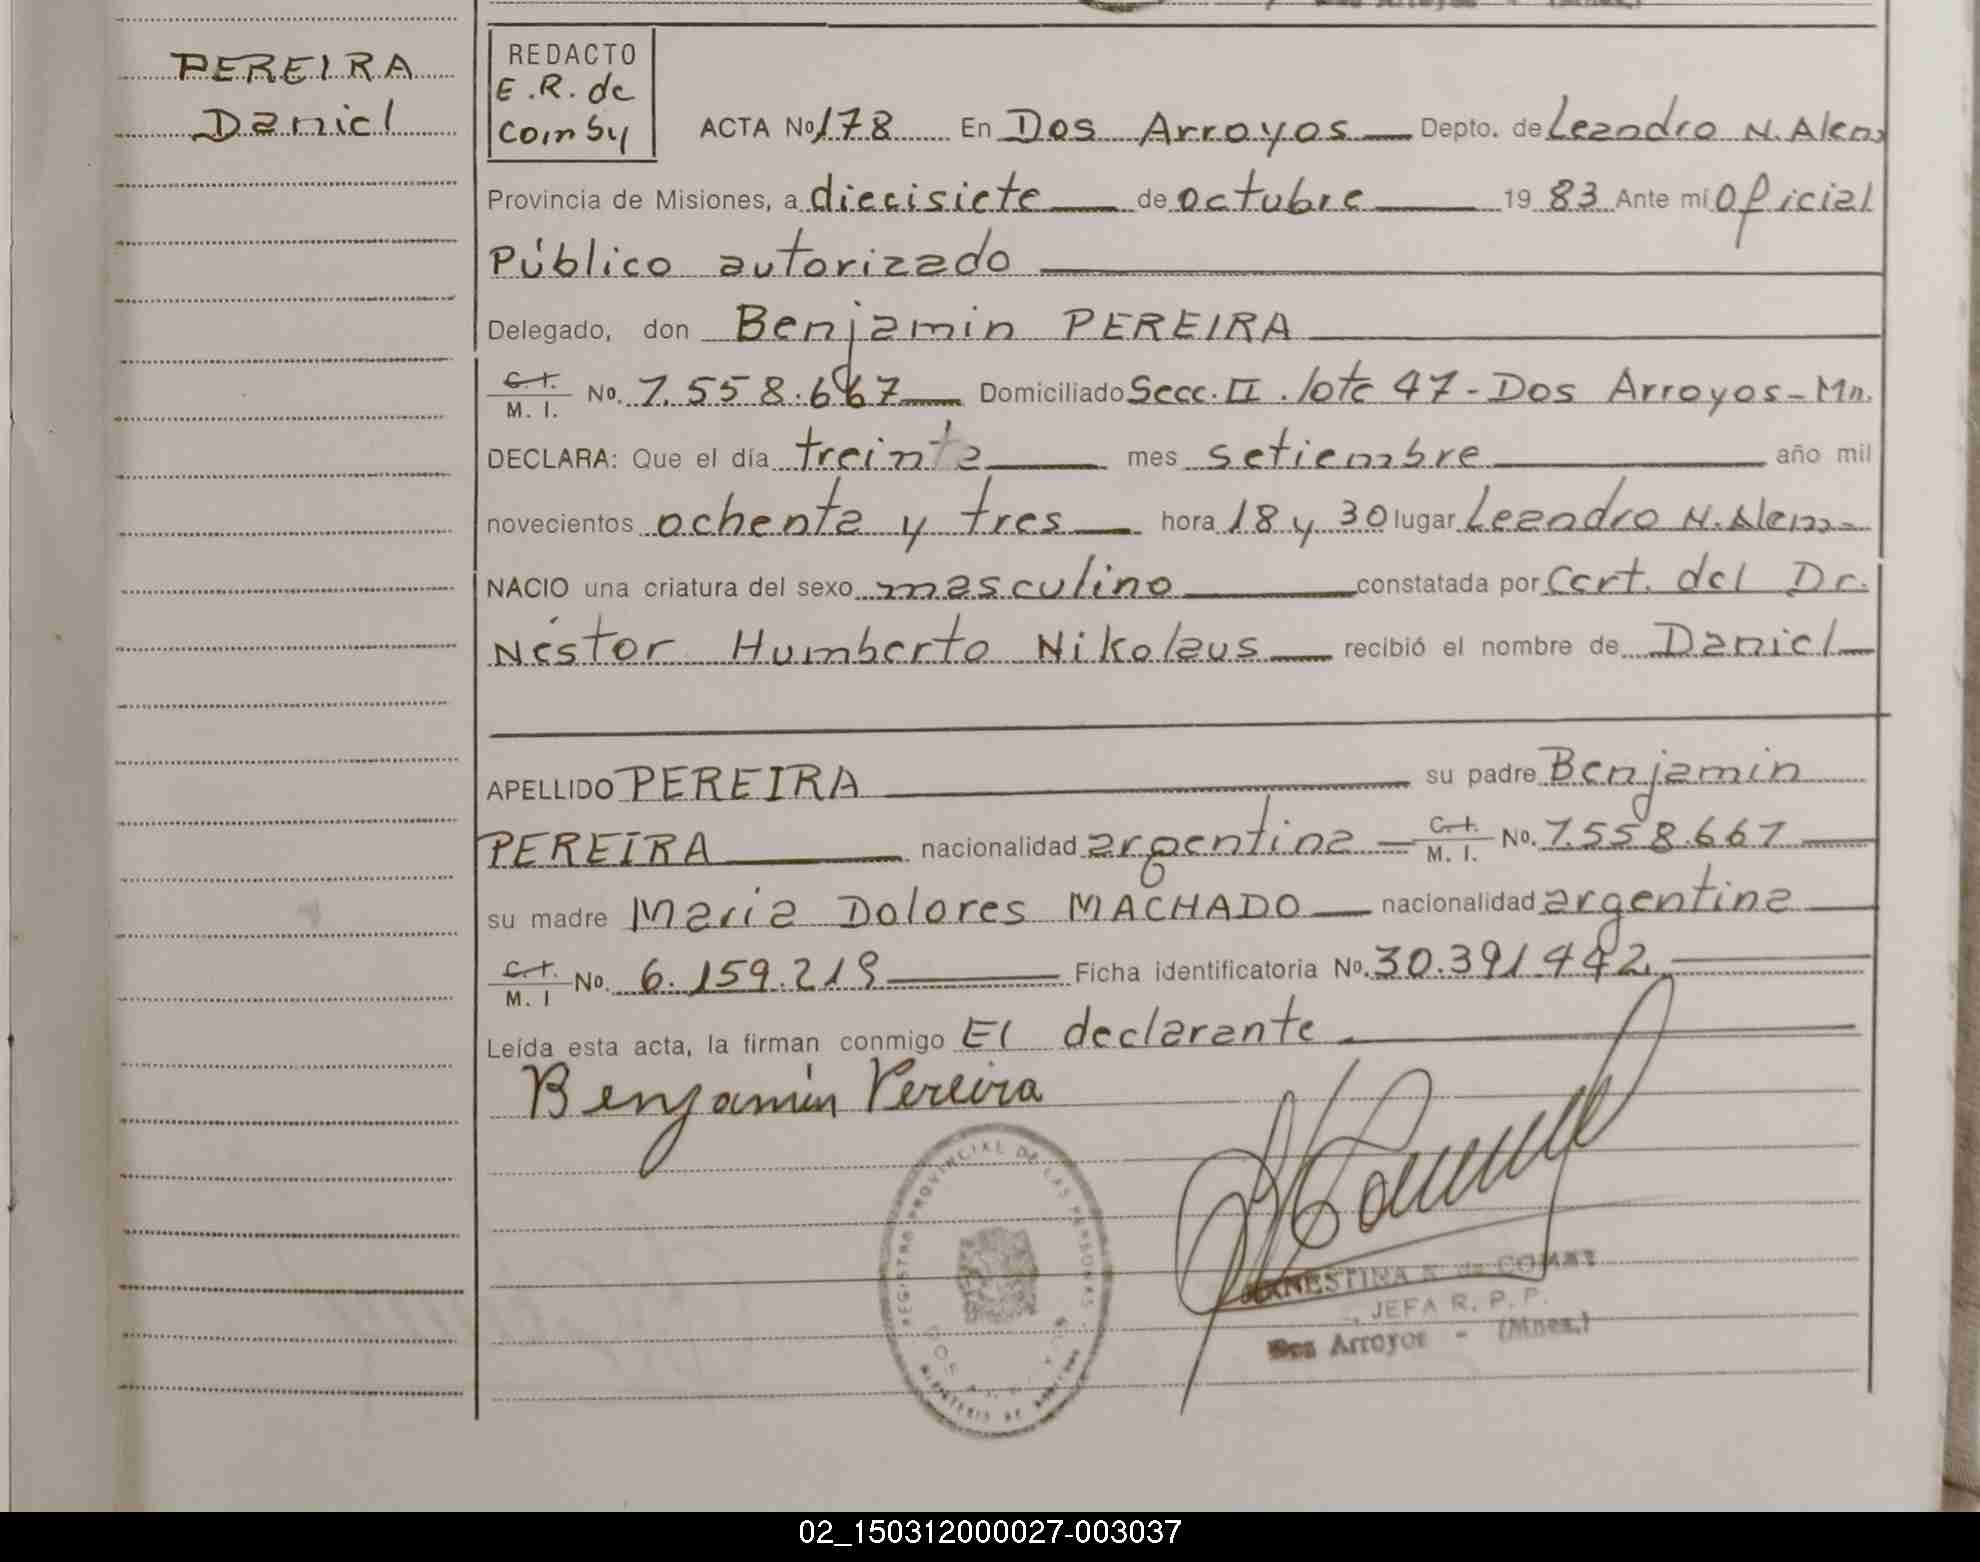 PEREIRA
Daniel
REDACTO
E.R. de
Coimby
ACTA No 178 En Dos Arroyos Depto. de Leandro N. Alem
Provincia de Misiones, a diecisiete de octubre 19 83 Ante mí Oficial
Público autorizado
Delegado, don Benjamin PEREIRA
C.I. M.I. No. 7.558.667 Domiciliado Secc. II. lote 47 - Dos Arroyos - Mn.
DECLARA: Que el día treinta mes setiembre año mil
novecientos ochenta y tres hora 18 y 30 lugar Leandro N. Alem
NACIO una criatura del sexo masculino constatada por Cert. del Dr.
Néstor Humberto Nikolaus recibió el nombre de Daniel
APELLIDO PEREIRA su padre Benjamin
PEREIRA nacionalidad argentina C.I. M.I. No. 7.558.667
su madre Maria Dolores MACHADO nacionalidad argentina
C.I. M.I No. 6.159.219 Ficha identificatoria No. 30.391.442
Leída esta acta, la firman conmigo El declarante
Benjamín Pereira
REGISTRO PROVINCIAL DE LAS PERSONAS
MINISTERIO DE
JEFA R. P. P.
Dos Arroyos - (Mnes.)
02_150312000027-003037